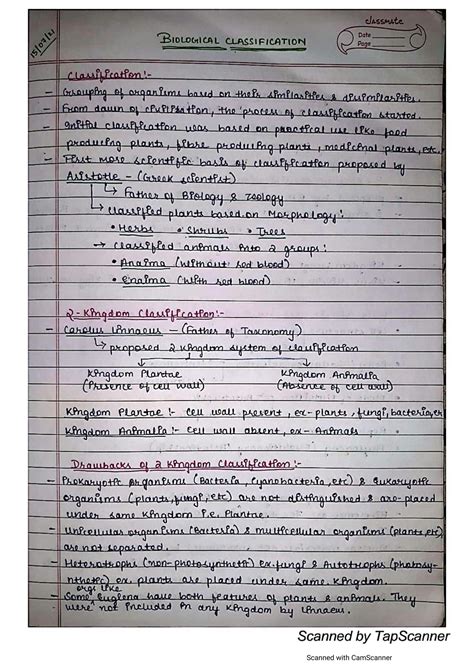 classmate
Date
Page
15/07/21
BIOLOGICAL CLASSIFICATION
Classification:-
- Grouping of organisms based on their similarities & dissimilarities.
- From dawn of civilisation, the process of classification started.
- Initial classification was based on practical use like food
producing plants, fibre producing plants, medicinal plants, etc.
- First more scientific basis of classification proposed by
Aristotle - (Greek scientist)
↳ Father of Biology & Zoology
↳ classified plants based on Morphology:
• Herbs • Shrubs • Trees
→ classified animals into 2 groups:
• Anaima (without red blood)
• Enaima (with red blood)
2-Kingdom Classification:-
- Carolus Linnaeus - (Father of Taxonomy)
↳ proposed 2 kingdom system of classification
Kingdom Plantae Kingdom Animalia
(Presence of cell wall) (Absence of cell wall)
Kingdom Plantae :- cell wall present, ex-plants, fungi, bacteria,
Kingdom Animalia :- cell wall absent, ex- Animals
Drawbacks of 2 Kingdom Classification :-
- Prokaryotic organisms (Bacteria, Cyanobacteria, etc) & Eukaryotic
organisms (plants, fungi, etc) are not distinguished & are placed
under same kingdom i.e. Plantae.
- Unicellular organisms (Bacteria) & multicellular organisms (plants, etc)
are not separated.
- Heterotrophs (non-photosynthetic) ex. fungi & Autotrophs (photosy-
nthetic) ex. plants are placed under same kingdom.
- Some orgs like Euglena have both features of plants & animals. They
were not included in any kingdom by
Scanned by TapScanner
Scanned with CamScanner